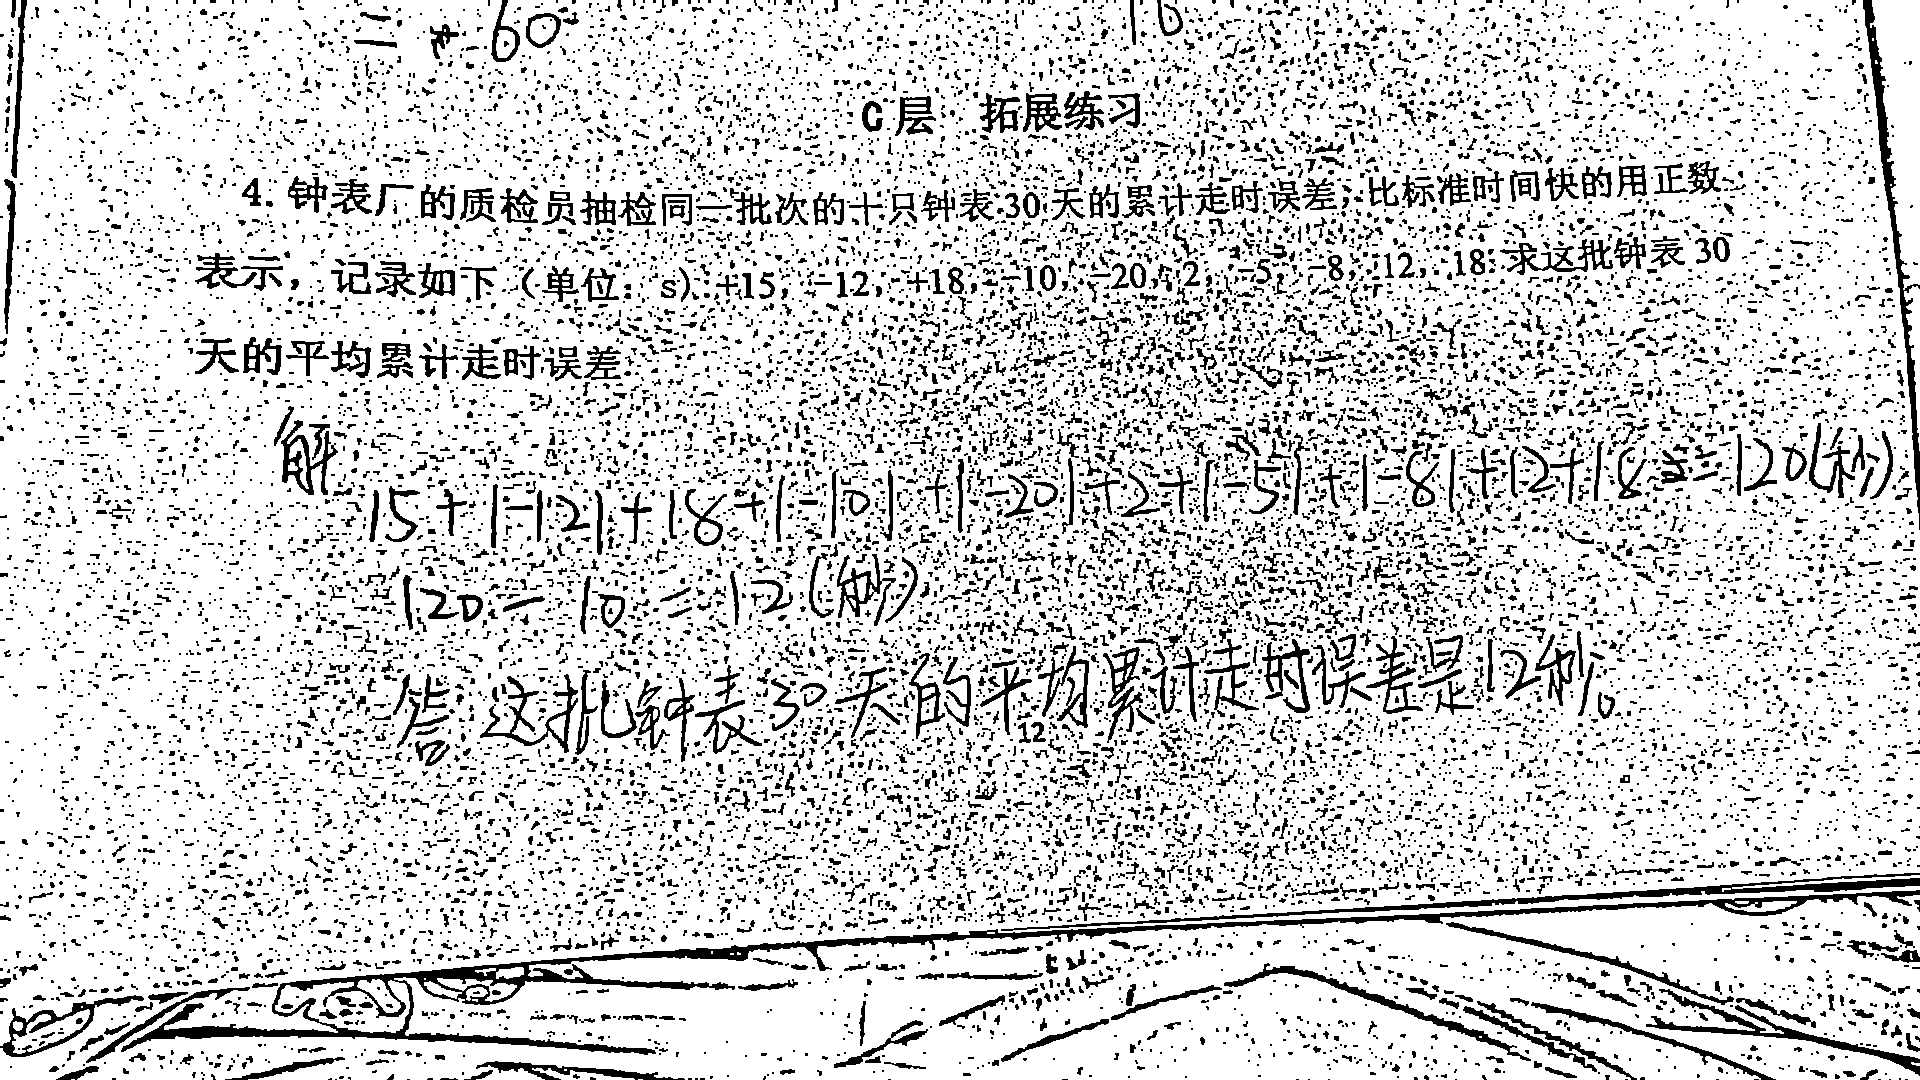 = 60
10
C层 拓展练习
4. 钟表厂的质检员抽检同一批次的十只钟表 30 天的累计走时误差，比标准时间快的用正数
表示，记录如下（单位：s）+15，-12，+18，-10，-20，2，-5，-8，12，18. 求这批钟表 30
天的平均累计走时误差.
解
15+|-12|+18+|-10|+|-20|+2+|-5|+|-8|+12+18==120(秒)
120 - 10 = 12(秒)
答 这批钟表30天的平均累计走时误差是12秒。
12